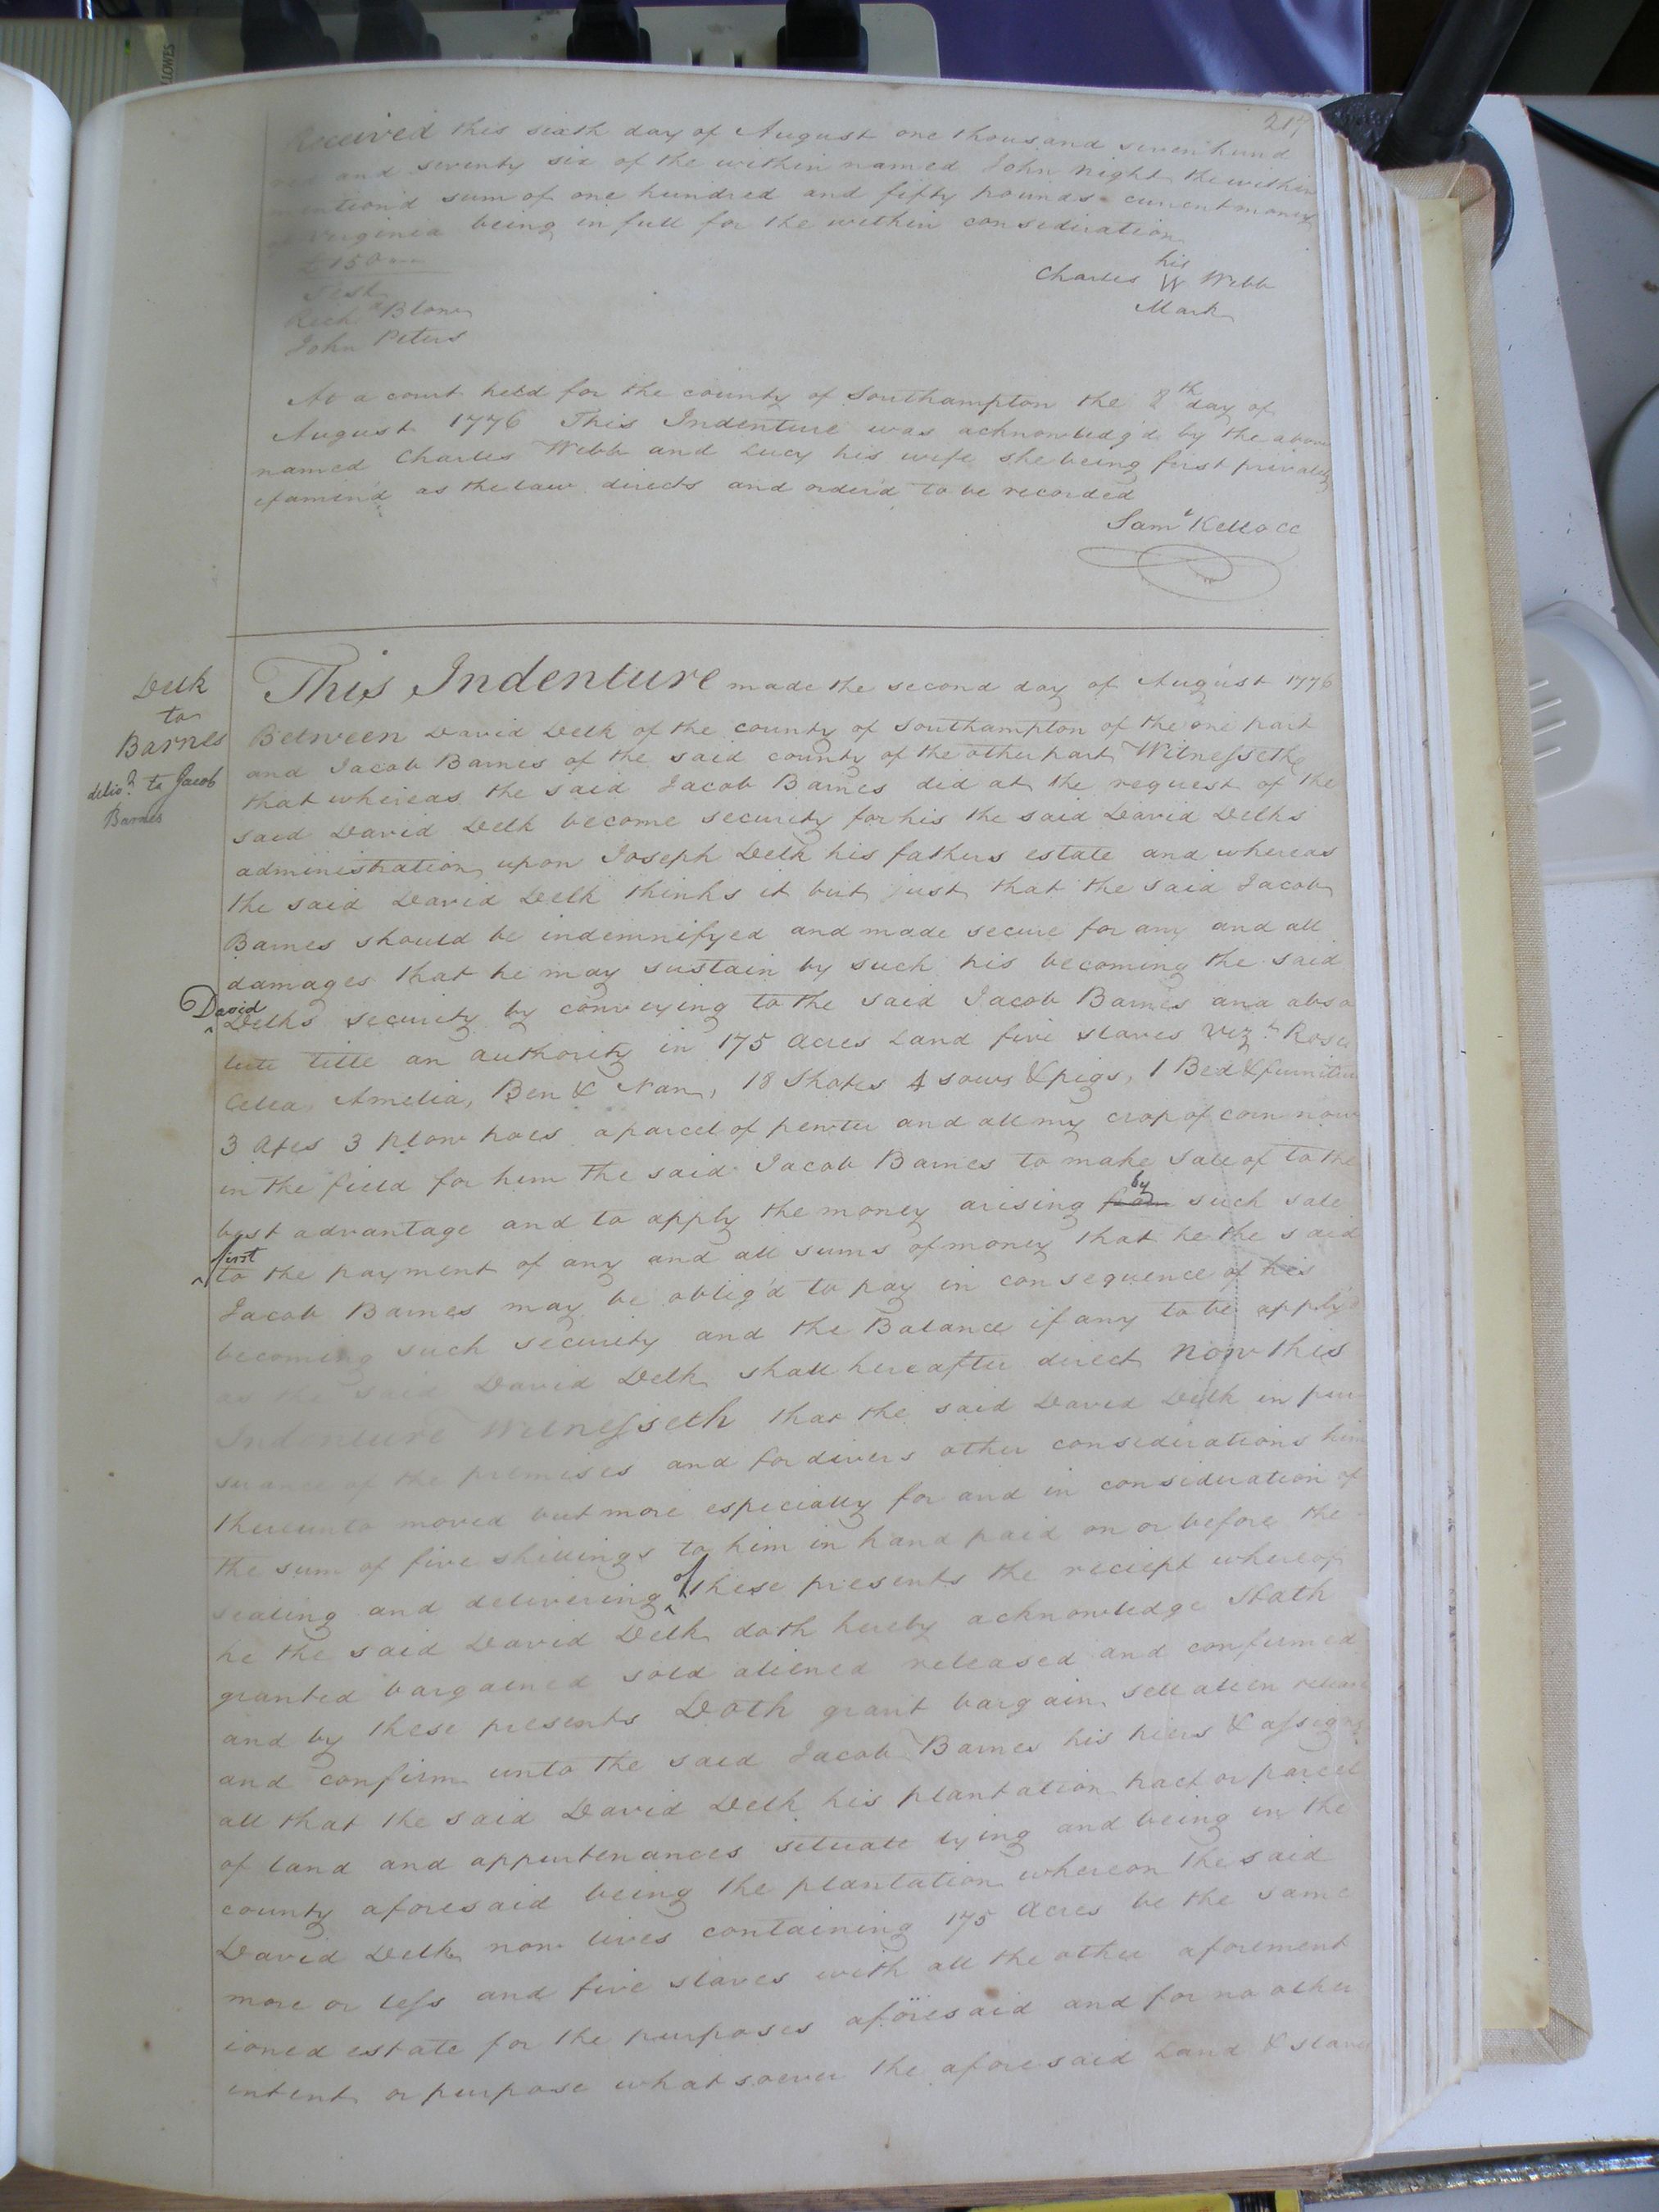 217
Received this sixth day of August one thousand seven hund
red and seventy six of the within named John Night the within
mentiond sum of one hundred and fifty pounds current money
of Virginia being in full for the within consideration
£150
Test
Charles his W Mark Webb
Richd Blow
John Peters
At a court held for the county of Southampton the 8th day of
August 1776 This Indenture was acknowledg'd by the above
named Charles Webb and Lucy his wife she being first privately
examin'd as the law directs and order'd to be recorded
Saml Kello CC
Delk
to
Barnes
delivd to Jacob
Barnes
This Indenture made the second day of August 1776
Between David Delk of the county of Southampton of the one part
and Jacob Barnes of the said county of the other part Witnesseth
that whereas the said Jacob Barnes did at the request of the
said David Delk become security for his the said David Delks
administration upon Joseph Delk his fathers estate and whereas
the said David Delk thinks it but just that the said Jacob
Barnes should be indemnifyed and made secure for any and all
damages that he may sustain by such his becoming the said
David Delks security by conveying to the said Jacob Barnes ana abso
lute title an authority in 175 acres Land five slaves Vizt Rose
Celea, Amelia, Ben & Nan, 18 Shotes 4 sows & pigs, 1 Bed & furniture
3 axes 3 plow hoes a parcel of pewter and all my crop of corn now
in the field for him the said Jacob Barnes to make sale of to the
best advantage and to apply the money arising by such sale
first to the payment of any and all sums of money that he the said
Jacob Barnes may be oblig'd to pay in consequence of his
becoming such security and the Balance if any to be apply'd
as the said David Delk shall hereafter direct Now this
Indenture Witnesseth that the said David Delk in pur
suance of the premises and for divers other considerations him
thereunto moved but more especially for and in consideration of
the sum of five shillings to him in hand paid on or before the
sealing and delivering of these presents the reciept whereof
he the said David Delk doth hereby acknowledge Hath
granted bargained sold aliened released and confirmed
and by these presents Doth grant bargain sell alien release
and confirm unto the said Jacob Barnes his hiers & assigns
all that the said David Delk his plantation tract or parcel
of land and appurtenances situate lying and being in the
county aforesaid being the plantation whereon the said
David Delk now lives containing 175 acres be the same
more or less and five slaves with all the other aforement
ioned estate for the purposes aforesaid and for no other
intent or purpose whatsoever the aforesaid Land & slaves